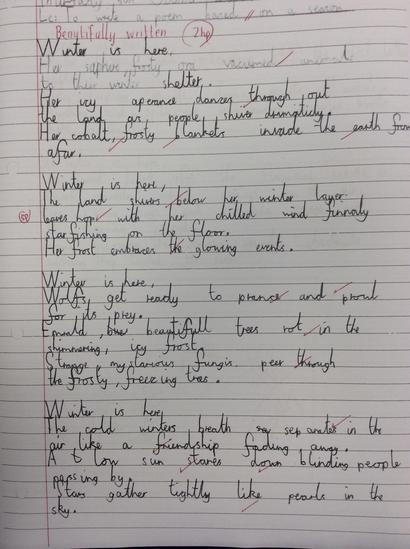 Lc: To write a poem based on a season
Beautifully written 2hp
Winter is here,
Her saphire, frosty
to their winter shelter.
Her icy aperance danzes through out
the land as people shiver dramaticly.
Her cobalt, frosty blankets invade the earth from
afar.
Winter is here,
The land shivers below her winter layer
sp leaves hop with her chilled wind finnaly
starfishing on the floor.
Her frost embraces the glowing events.
Winter is here,
Wolfs get ready to prance and prowl
for its prey.
beautifull trees rot in the
shimmering, icy frost.
Strange, mysterious fungis peer through
the frosty, freezing trees.
Winter is here,
The cold winters breath separates in the
air like a friendship fading away.
A low sun stares down blinding people
passing by.
Stars gather tightly like pearls in the
sky.